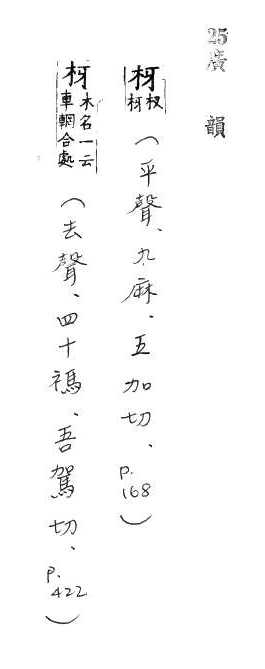 25廣韻
枒杈枒(平聲、九麻、五加切、p.168)
枒木名一云車輞合處(去聲、四十禡、吾駕切、p.422)